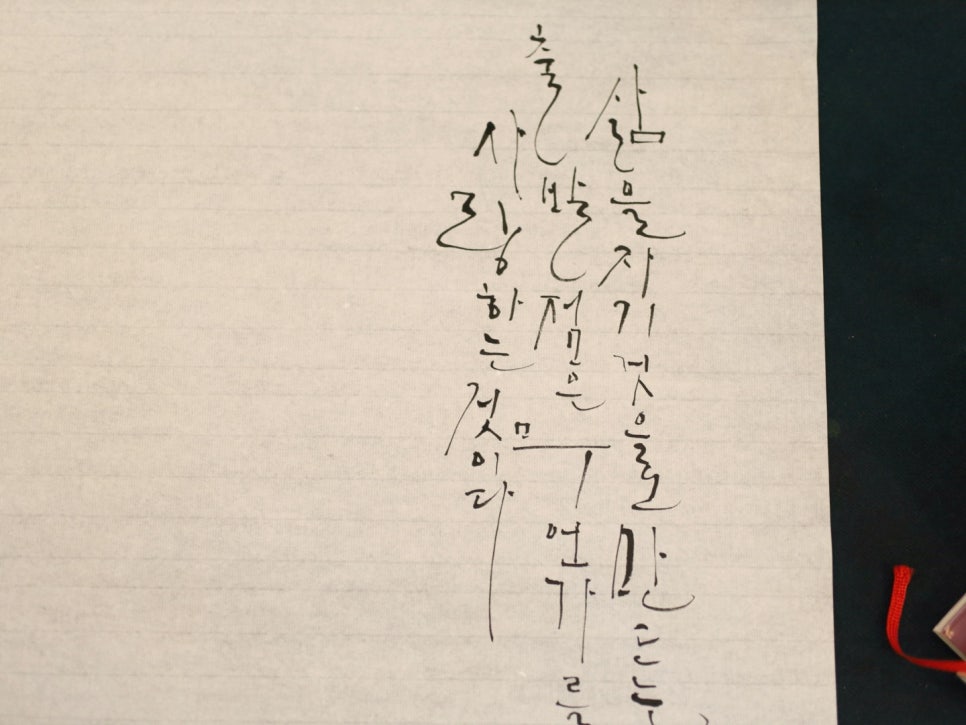 삶을 자기 것으로 만드는
출발점은 무언가를
사랑하는 것이다